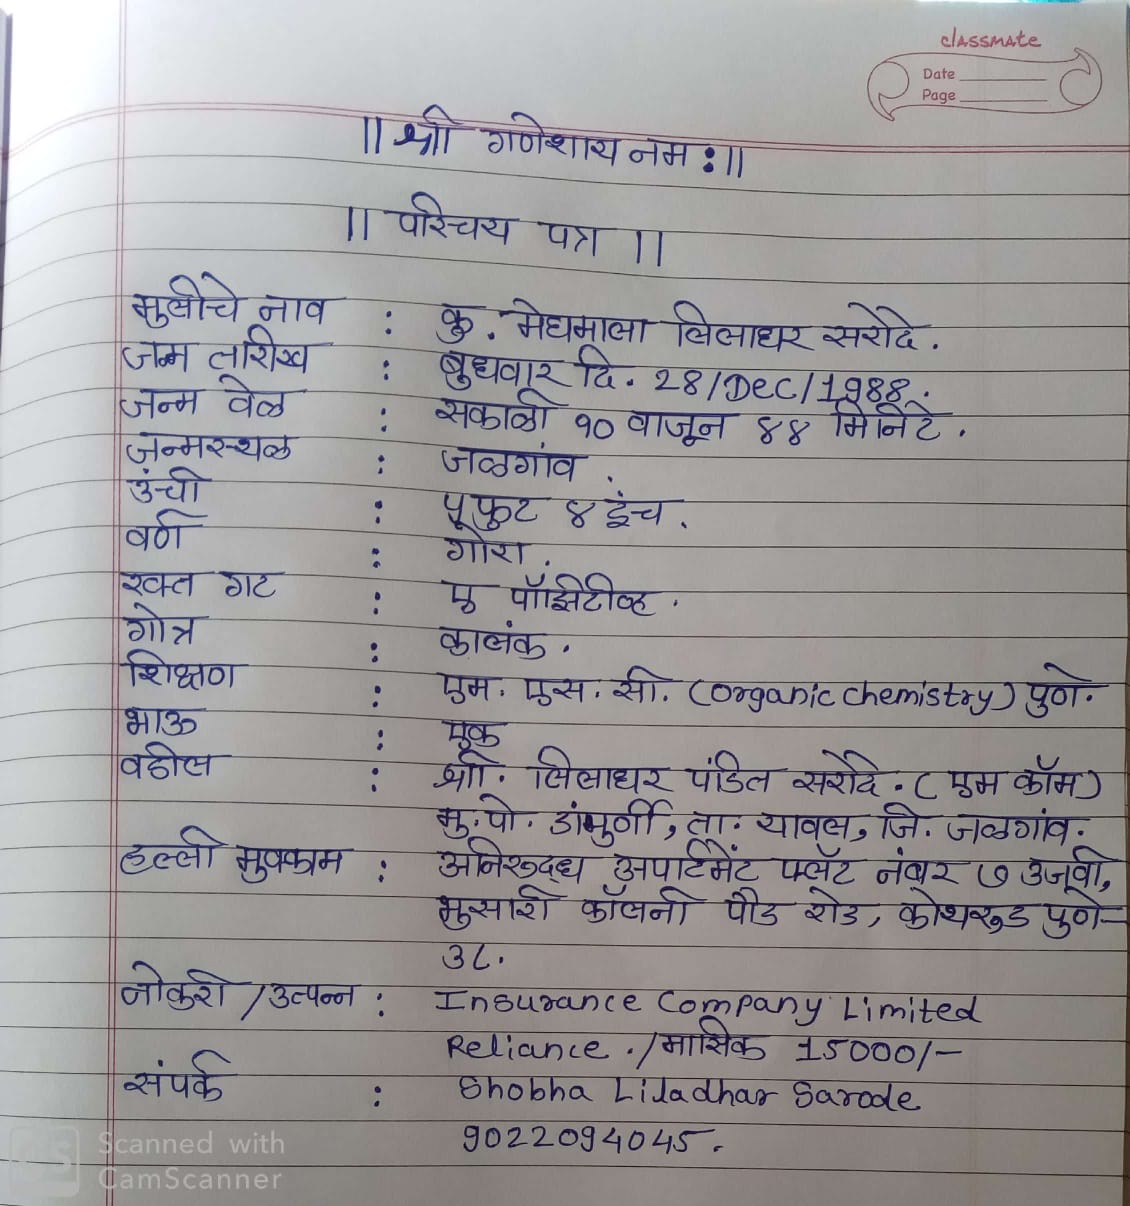 classmate
Date
Page
|| श्री गणेशाय नमः ||
|| परिचय पत्र ||
मुलीचे नाव : कु. मेघमाला लिलाधर सरोदे.
जन्म तारीख : बुधवार दि. 28/Dec/1988.
जन्म वेळ : सकाळी १० वाजून ४४ मिनिटे.
जन्मस्थळ : जळगांव.
उंची : ५ फुट ४ इंच.
वर्ण : गोरा.
रक्त गट : ए पॉझिटीव्ह.
गोत्र : कालंक.
शिक्षण : एम. एस. सी. (Organic chemistry) पुणे.
भाऊ : एक
वडील : श्री. लिलाधर पंडित सरोदे. (एम कॉम)
मु. पो. डांभुर्णी, ता. यावल, जि. जळगांव.
हल्ली मुक्काम : अनिरुद्ध अपार्टमेंट फ्लॅट नंबर ७ उजवी,
भुसारी कॉलनी पौड रोड, कोथरुड पुणे-
३८.
नोकरी / उत्पन्न : Insurance Company Limited
Reliance. / मासिक 15000/-
संपर्क : Shobha Liladhar Sarode
9022094045.
CS Scanned with
CamScanner